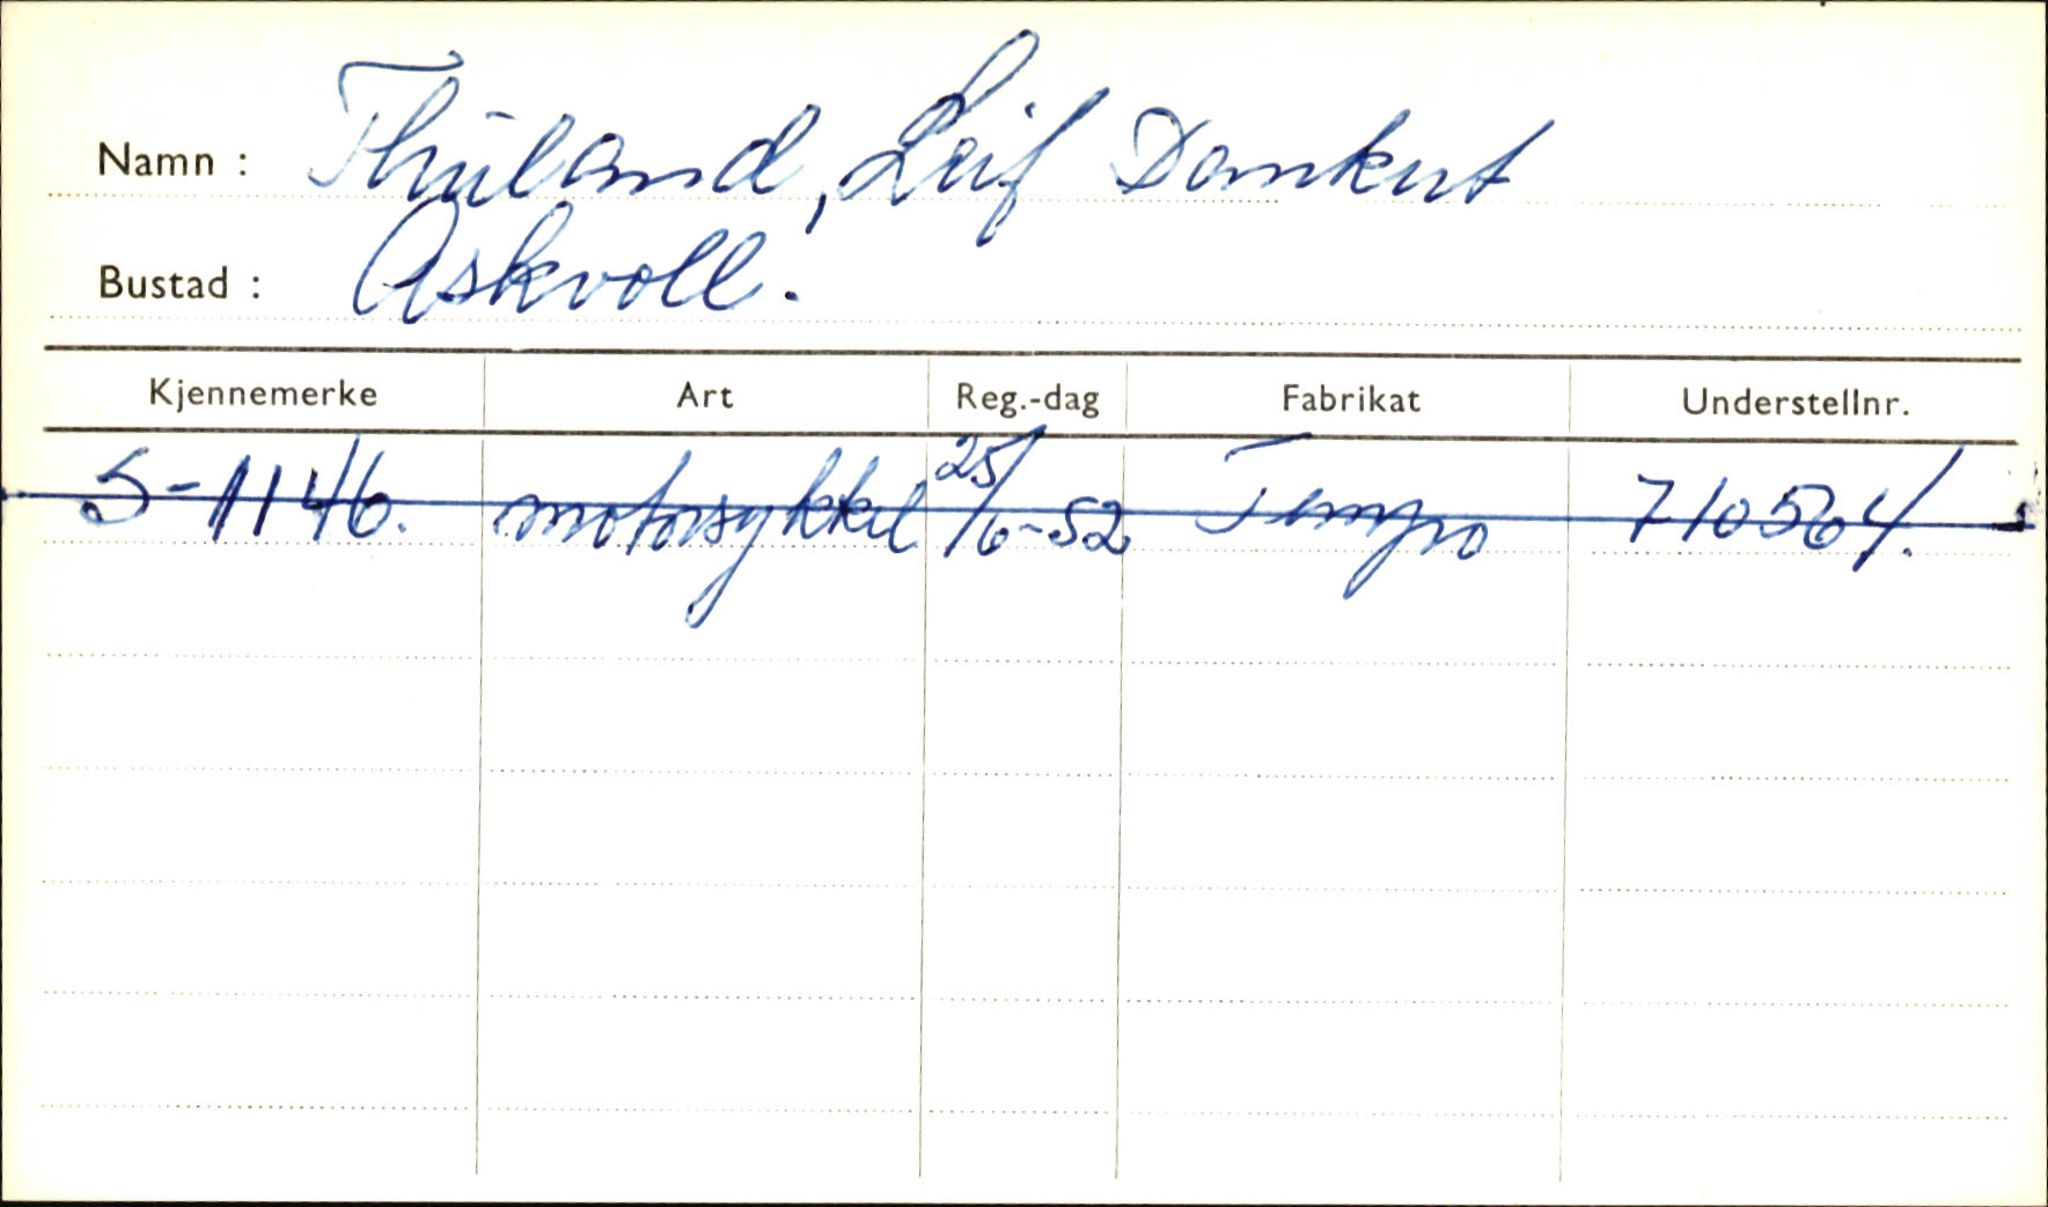 Namn : Thuland, Leif Dankert
Bustad : Askvoll.
Kjennemerke Art Reg.-dag Fabrikat Understellnr.
S-11146. motorsykkel 25/6-52 Tempo 710564.